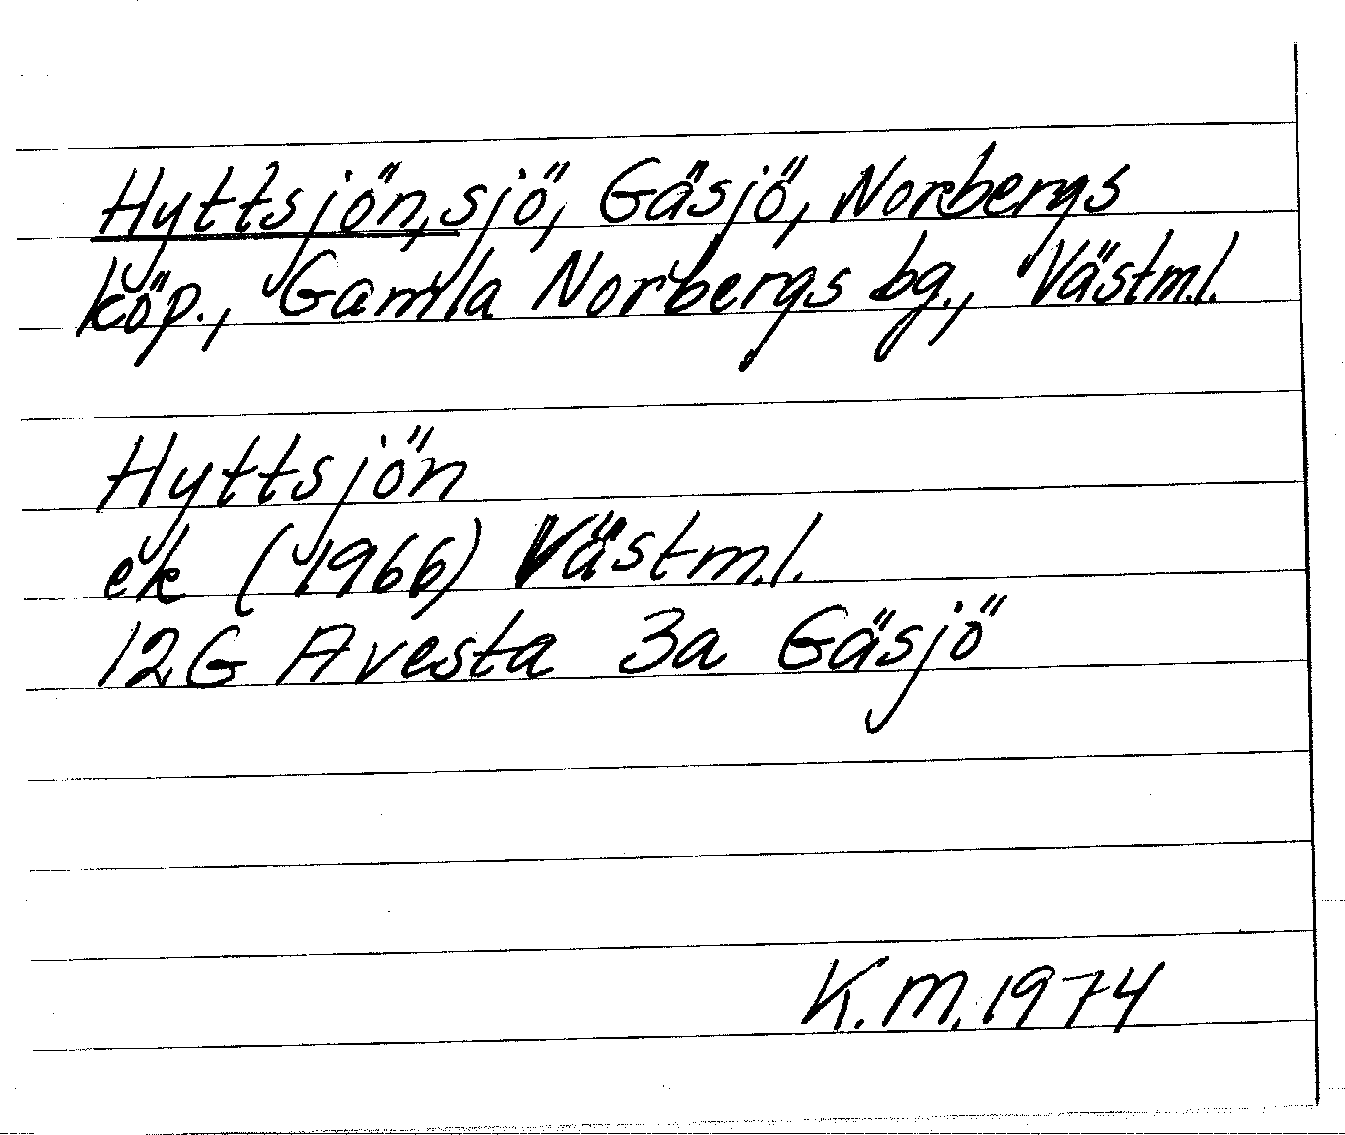 Hyttsjön, sjö, Gäsjö, Norbergs
köp., Gamla Norbergs bg., Västm.l.
Hyttsjön
ek (1966) Västm.l.
12G Avesta 3a Gäsjö
K.M. 1974